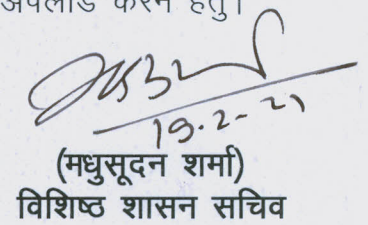 अपलोड करने हेतु।
19.2-21
(मधुसूदन शर्मा)
विशिष्ठ शासन सचिव